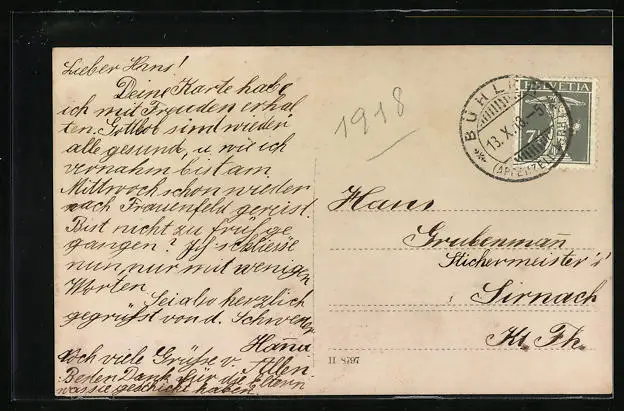 Lieber Hans!
Deine Karte habe
ich mit Freuden erhal
ten. Gottlob sind wieder
alle gesund, u. wie ich
vernahm bist am
Mittwoch schon wieder
nach Frauenfeld gereist.
Bist nicht zu früh ge
gangen? Ich schliesse
nun, nur mit wenigen
Worten.
Sei also herzlich
gegrüsst von d. Schwester
Hanna
Noch viele Grüsse v. Allen.
Besten Dank für die Eltern
was sie geschickt haben.
1918
BÜHLER
13.X.18.-5
(APPENZELL)
HELVETIA
7½
Hans
Grubenmann
Stichermeister's
Sirnach
Kt. Th.
H 8797